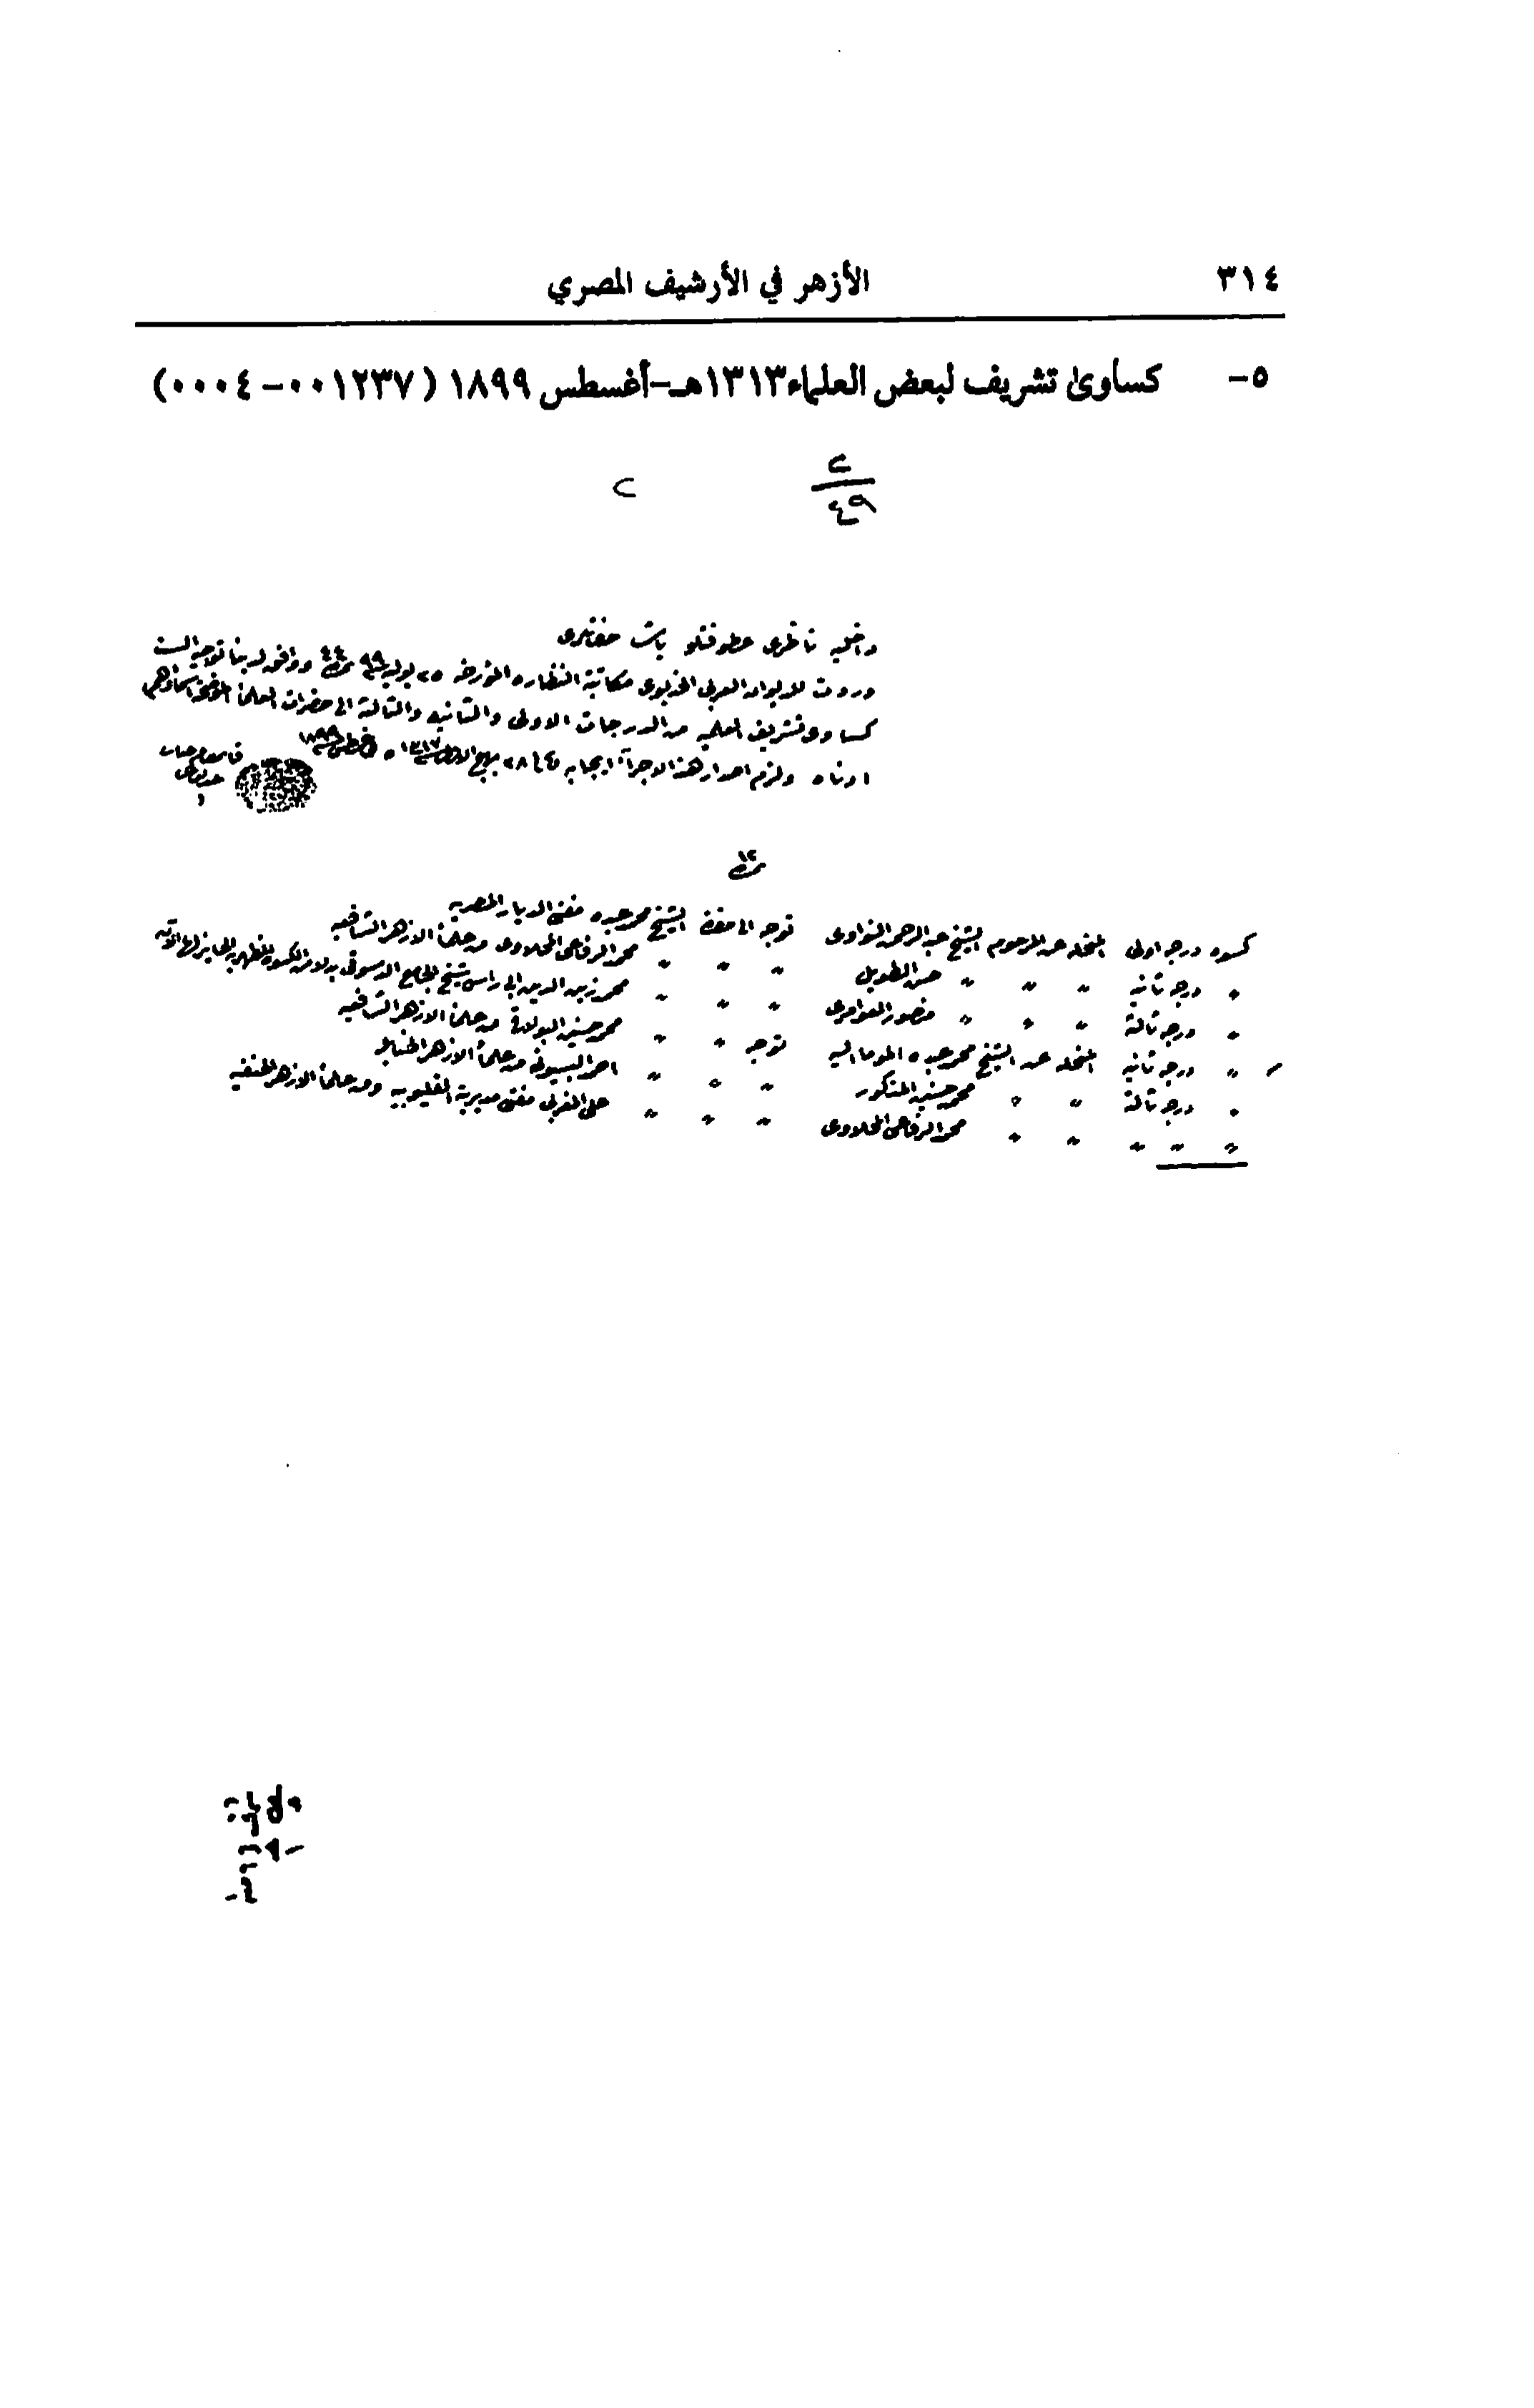 ٣١٤ الأزهر في الأرشيف المصري
٥- كساوىٰ تشريف لبعض العلماء ١٣١٣هـ-أغسطس ١٨٩٩ (٠٠١٢٣٧-٠٠٠٤)
٢
٤٩
٢
داخليه ناظرى عطوفتلو باشا حضرتلرى
وردت للديوان العربى الخديوى مكاتبة النظاره المؤرخه ٢٥ يوليه ٩٩ نمرة ٤٤ ووافق لدينا توجيه الست
كساوى تشريف العلميه من الدرجات الاولى والثانيه والثالثة الى حضرات العلما الموضحة اسماؤهم
ادناه ولزم اصدار هذا لاجرآ ايجابه ٢٨ ربيع الاول ١٣١٧ ٥ اغسطس ١٨٩٩
نمرة ١٢
كسوه درجه اولى المنحله عن المرحوم الشيخ عبد الرحمن النواوى توجه الى حضرة الشيخ محمد عبده مفتى الديار المصريه
" درجه ثانيه " " " حسن الطويل " " " محمد الرفاعى المحلاوى من علما الازهر الشافعيه
" درجه ثالثة " " " منصور العوامرى " " " محمد زين الدين ابى راس شيخ الجامع الدسوقى بدلا من الكسوه المظهريه الحايز لها الآن
" درجه ثانيه المنحله عن الشيخ محمد عبده الموما اليه توجه " " محمد حسنين البولاقى من علما الازهر الشافعيه
" درجه ثالثة " " محمد حسنين المذكور " " " احمد البسيونى من علما الازهر الحنابله
" " " " " محمد الرفاعى المحلاوى " " " على المغربى مفتى مديرية القليوبيه ومن علما الازهر الحنفيه